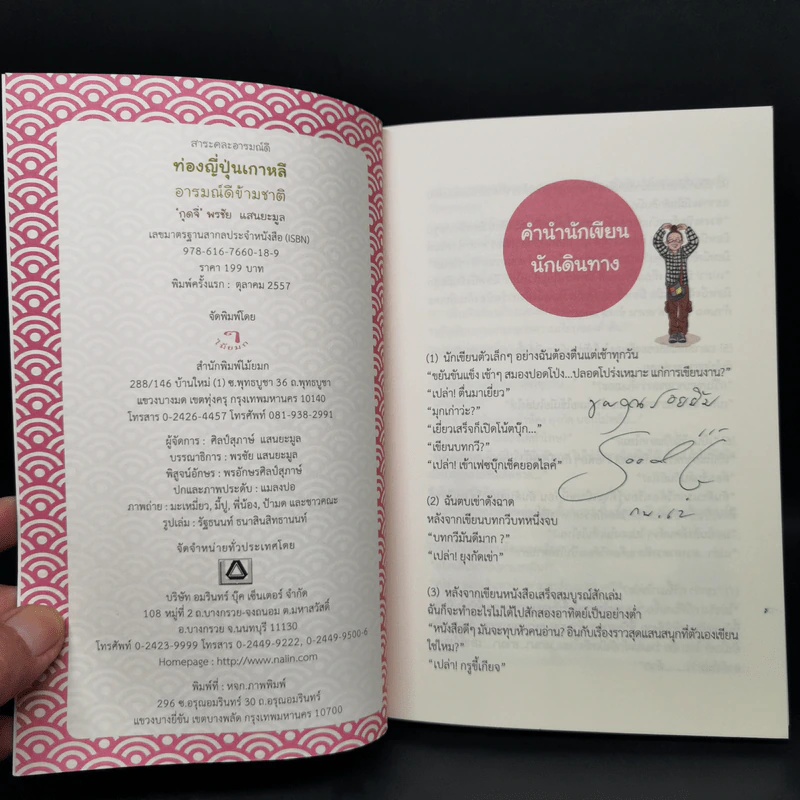 สาระคละอารมณ์ดี
ท่องญี่ปุ่นเกาหลี
อารมณ์ดีข้ามชาติ
'กุดจี่' พรชัย แสนยะมูล
เลขมาตรฐานสากลประจำหนังสือ (ISBN)
978-616-7660-18-9
ราคา 199 บาท
พิมพ์ครั้งแรก : ตุลาคม 2557
จัดพิมพ์โดย
ไม้ยมก
สำนักพิมพ์ไม้ยมก
288/146 บ้านใหม่ (1) ซ.พุทธบูชา 36 ถ.พุทธบูชา
แขวงบางมด เขตทุ่งครุ กรุงเทพมหานคร 10140
โทรสาร 0-2426-4457 โทรศัพท์ 081-938-2991
ผู้จัดการ : ศิลป์สุภาษ์ แสนยะมูล
บรรณาธิการ : พรชัย แสนยะมูล
พิสูจน์อักษร : พรอักษรศิลป์สุภาษ์
ปกและภาพประดับ : แมลงปอ
ภาพถ่าย : มะเหมี่ยว, มี้ปู, พี่น้อง, ป้ามด และชาวคณะ
รูปเล่ม : รัฐธนนท์ ธนาสินสิทธานนท์
จัดจำหน่ายทั่วประเทศโดย
บริษัท อมรินทร์ บุ๊ค เซ็นเตอร์ จำกัด
108 หมู่ที่ 2 ถ.บางกรวย-จงถนอม ต.มหาสวัสดิ์
อ.บางกรวย จ.นนทบุรี 11130
โทรศัพท์ 0-2423-9999 โทรสาร 0-2449-9222, 0-2449-9500-6
Homepage : http://www.naiin.com
พิมพ์ที่ : หจก.ภาพพิมพ์
296 ซ.อรุณอมรินทร์ 30 ถ.อรุณอมรินทร์
แขวงบางยี่ขัน เขตบางพลัด กรุงเทพมหานคร 10700
คำนำนักเขียน
นักเดินทาง
(1) นักเขียนตัวเล็กๆ อย่างฉันต้องตื่นแต่เช้าทุกวัน
"ขยันขันแข็ง เช้าๆ สมองปลอดโปร่ง...ปลอดโปร่งเหมาะ แก่การเขียนงาน?"
"เปล่า! ตื่นมาเยี่ยว"
"มุกเก่าว่ะ?"
"เยี่ยวเสร็จก็เปิดโน้ตบุ๊ก..."
"เขียนบทกวี?"
"เปล่า! เข้าเฟซบุ๊กเช็คยอดไลค์"
(2) ฉันตบเข่าดังฉาด
หลังจากเขียนบทกวีบทหนึ่งจบ
"บทกวีมันดีมาก ?"
"เปล่า! ยุงกัดเข่า"
(3) หลังจากเขียนหนังสือเสร็จสมบูรณ์สักเล่ม
ฉันก็จะทำอะไรไม่ได้ไปสักสองอาทิตย์เป็นอย่างต่ำ
"หนังสือดีๆ มันจะทุบหัวคนอ่าน? อินกับเรื่องราวสุดแสนสนุกที่ตัวเองเขียน
ใช่ไหม?"
"เปล่า! กรูขี้เกียจ"